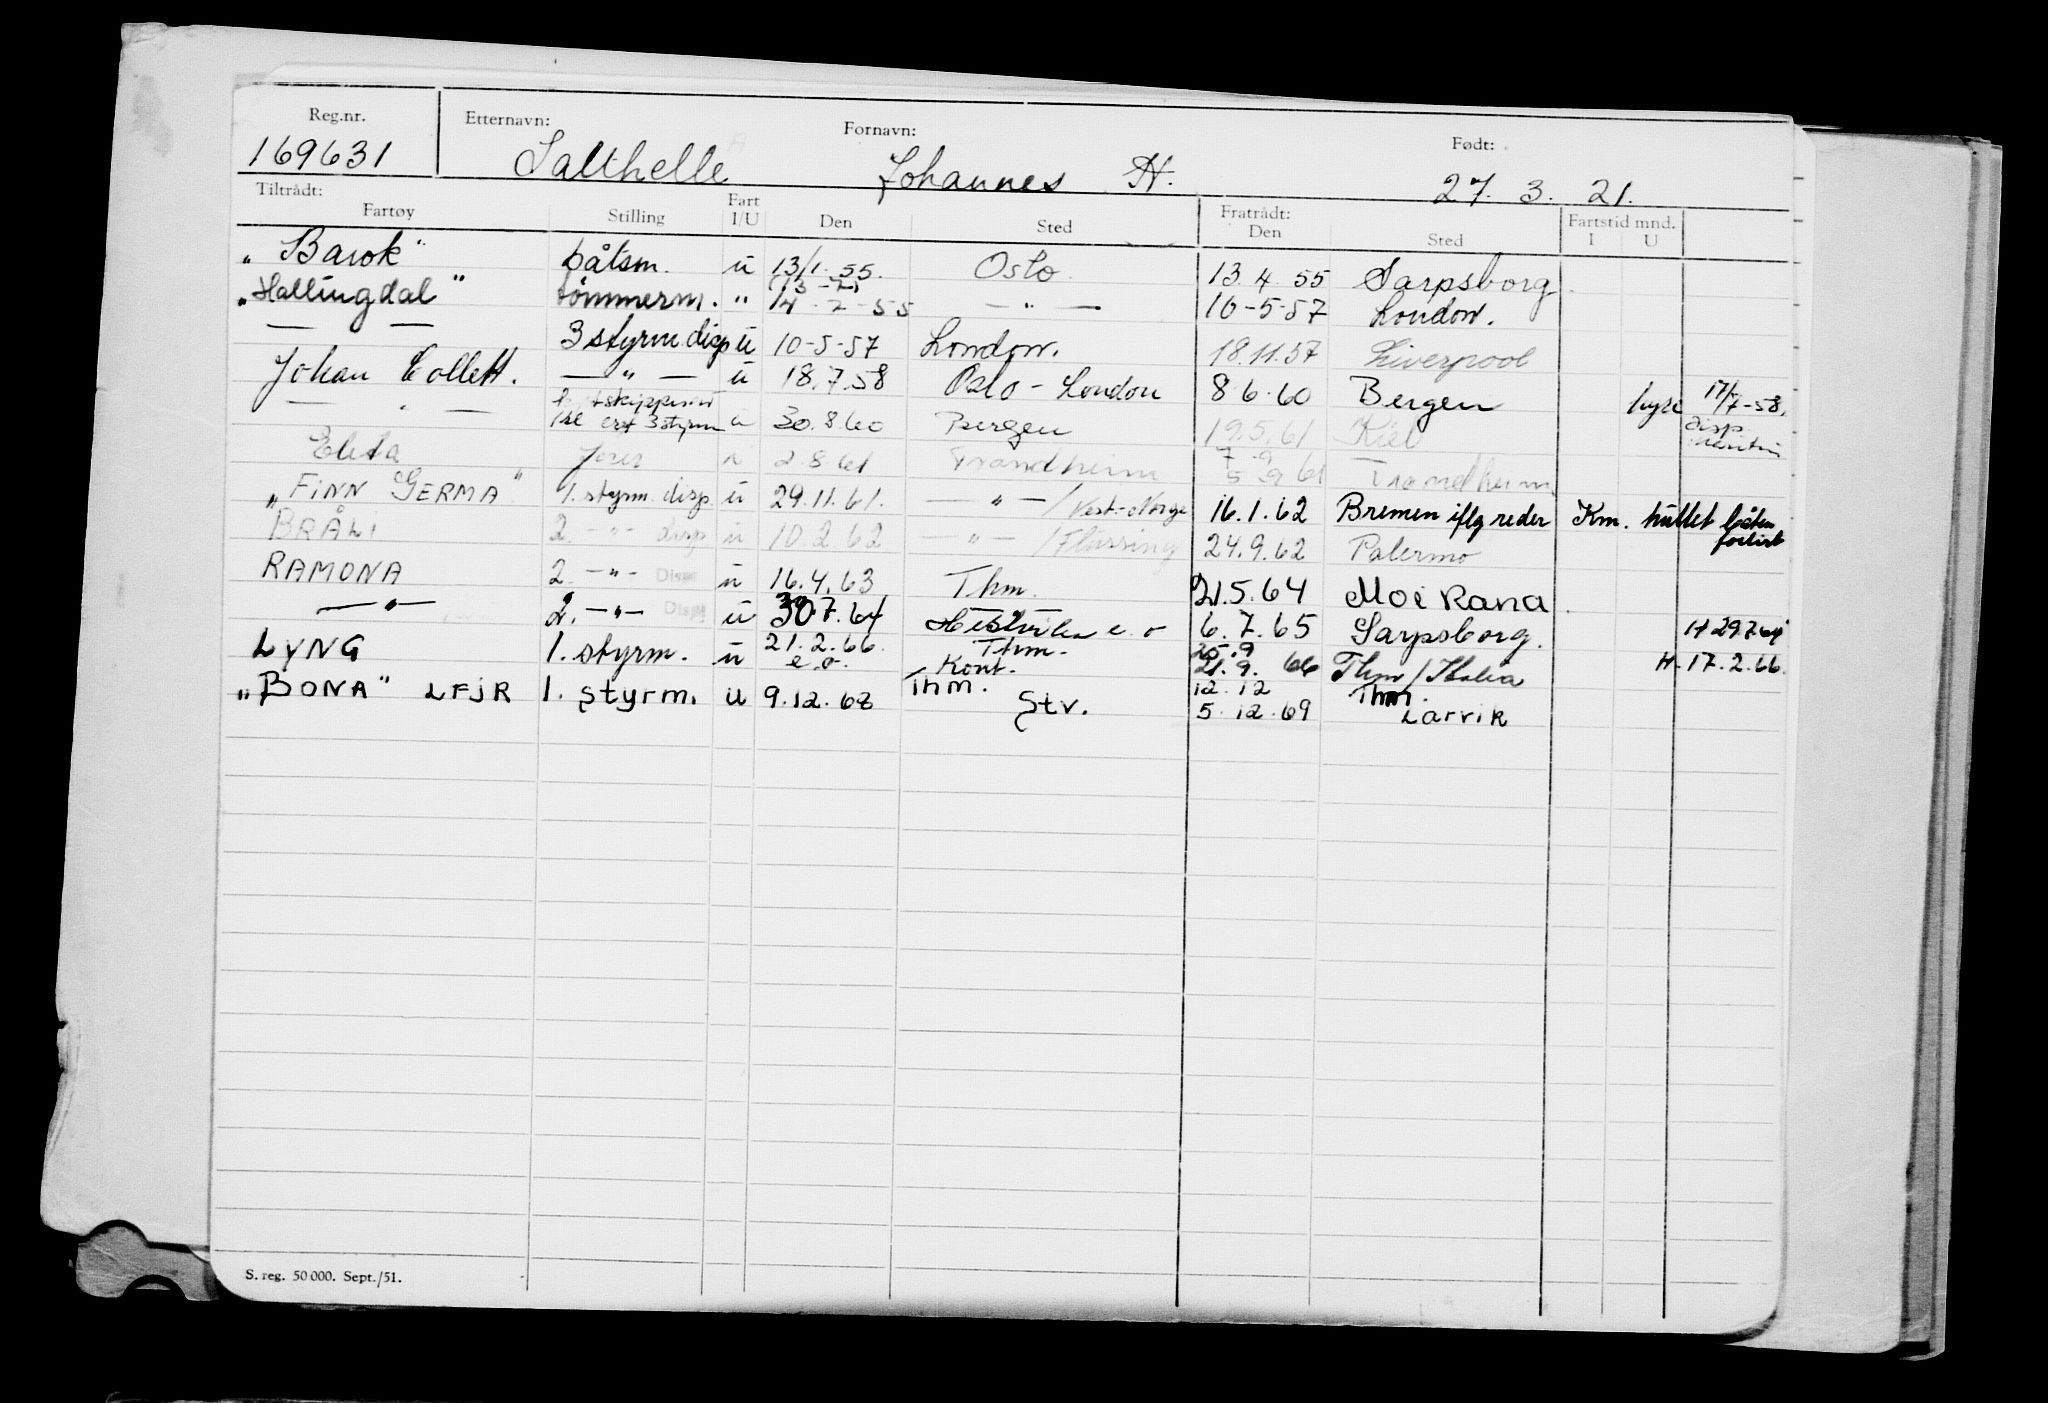 Reg.nr. Etternavn: Fornavn: Født:
169631 Salthelle Johannes H. 27. 3. 21.
Tiltrådt: Fratrådt:
Fartøy Stilling Fart I/U Den Sted Den Sted Fartstid mnd. I U
"Barok" båtsm. u 13/1. 55. Oslo 13 4 55 Sarpsborg
"Hallingdal" tømmerm. " 14-2-55 — " — 10-5-57 London.
— — 3 styrm disp u 10-5-57 London. 18.11.57 Liverpool
Johan Collett. — " — u 18.7.58 Oslo - London 8 6.60 Bergen hyre 17/7-58.
— " — 3 styrm u 30.8.60 Bergen 19.5.61 Kiel disp.
Elita u 2.8.61 Trondheim 5 9 61 Trondheim
"FINN GERMA" 1. styrm. disp. u 29.11.61. — " — / Vest-Norge 16.1.62 Bremen iflg reder Km. båten forlist
BRÅLI 2. — " — disp u 10.2.62 — " — / Flissing 24.9.62 Palermo
RAMONA 2. — " — Disp u 16.4.63 Thm. 21.5.64 Moi Rana
— " — 2. — " — Disp u 30.7.64 e.o 6.7.65 Sarpsborg. H 29.7.64
LYNG 1. styrm. u 21.2.66 e.o. Thm. Kont. 25.9 21.9. 66 Thm / Italia H. 17.2.66.
"BONA" LFJR 1. styrm. u 9.12.68 Thm. Stv. 12.12 5.12.69 Thm. Larvik
S. reg. 50 000. Sept./51.